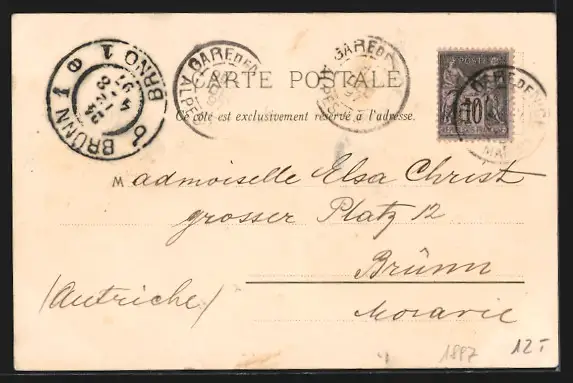 BRÜNN 1 BRNO 1
GARE DE
GARE DE
CARTE POSTALE
Ce côté est exclusivement réservé à l'adresse.
POSTE
10
Madmoiselle Elsa Christ
grosser Platz 12
Brünn
(Autriche)
Moravie
1897
12.-